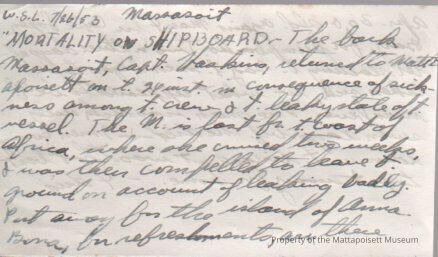 W.S.L. 7/26/53 Massasoit
"MORTALITY ON SHIPBOARD - The bark
Massasoit, Capt. Haskins, returned to Matta
poisett on t. inst. in consequence of sick-
ness among t. crew & t. leaky state of t.
vessel. The M. is fast fr. t. coast of
Africa, where she cruised two weeks,
& was then compelled to leave t.
ground on account of leaking badly.
Put away for the island of Anna
Bona, for refreshments, and there
Property of the Mattapoisett Museum